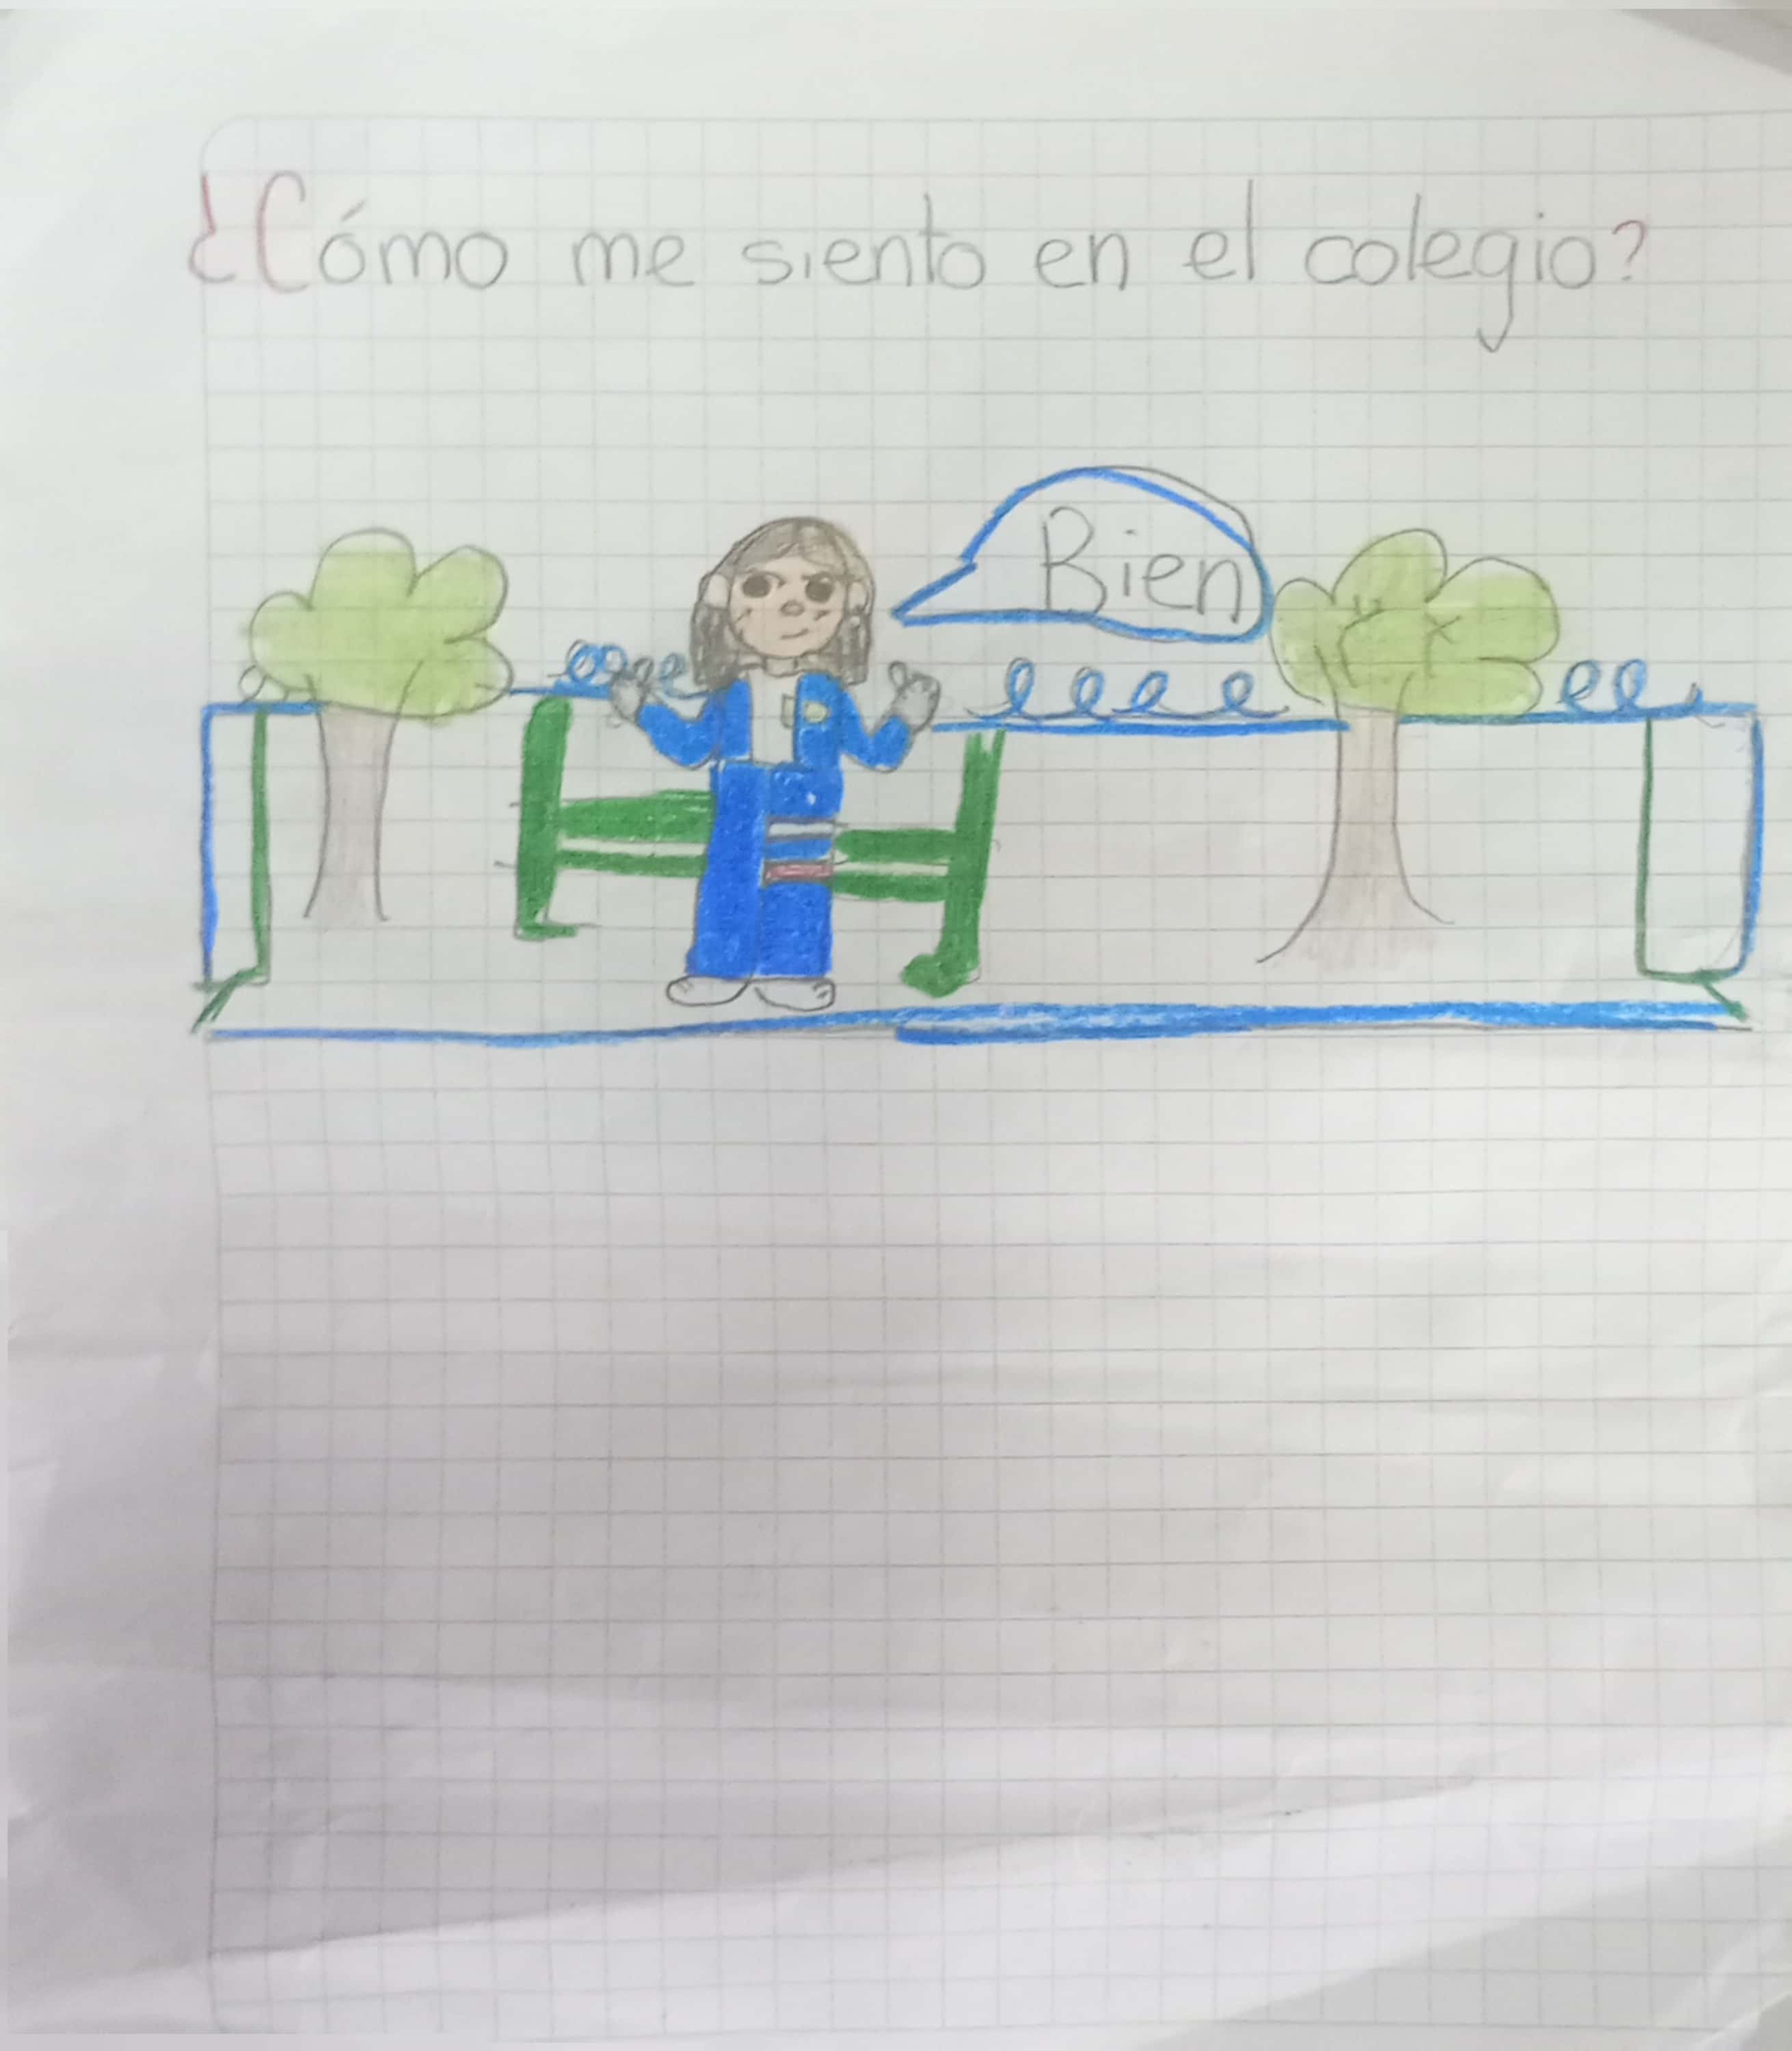 ¿Cómo me siento en el colegio?
Bien